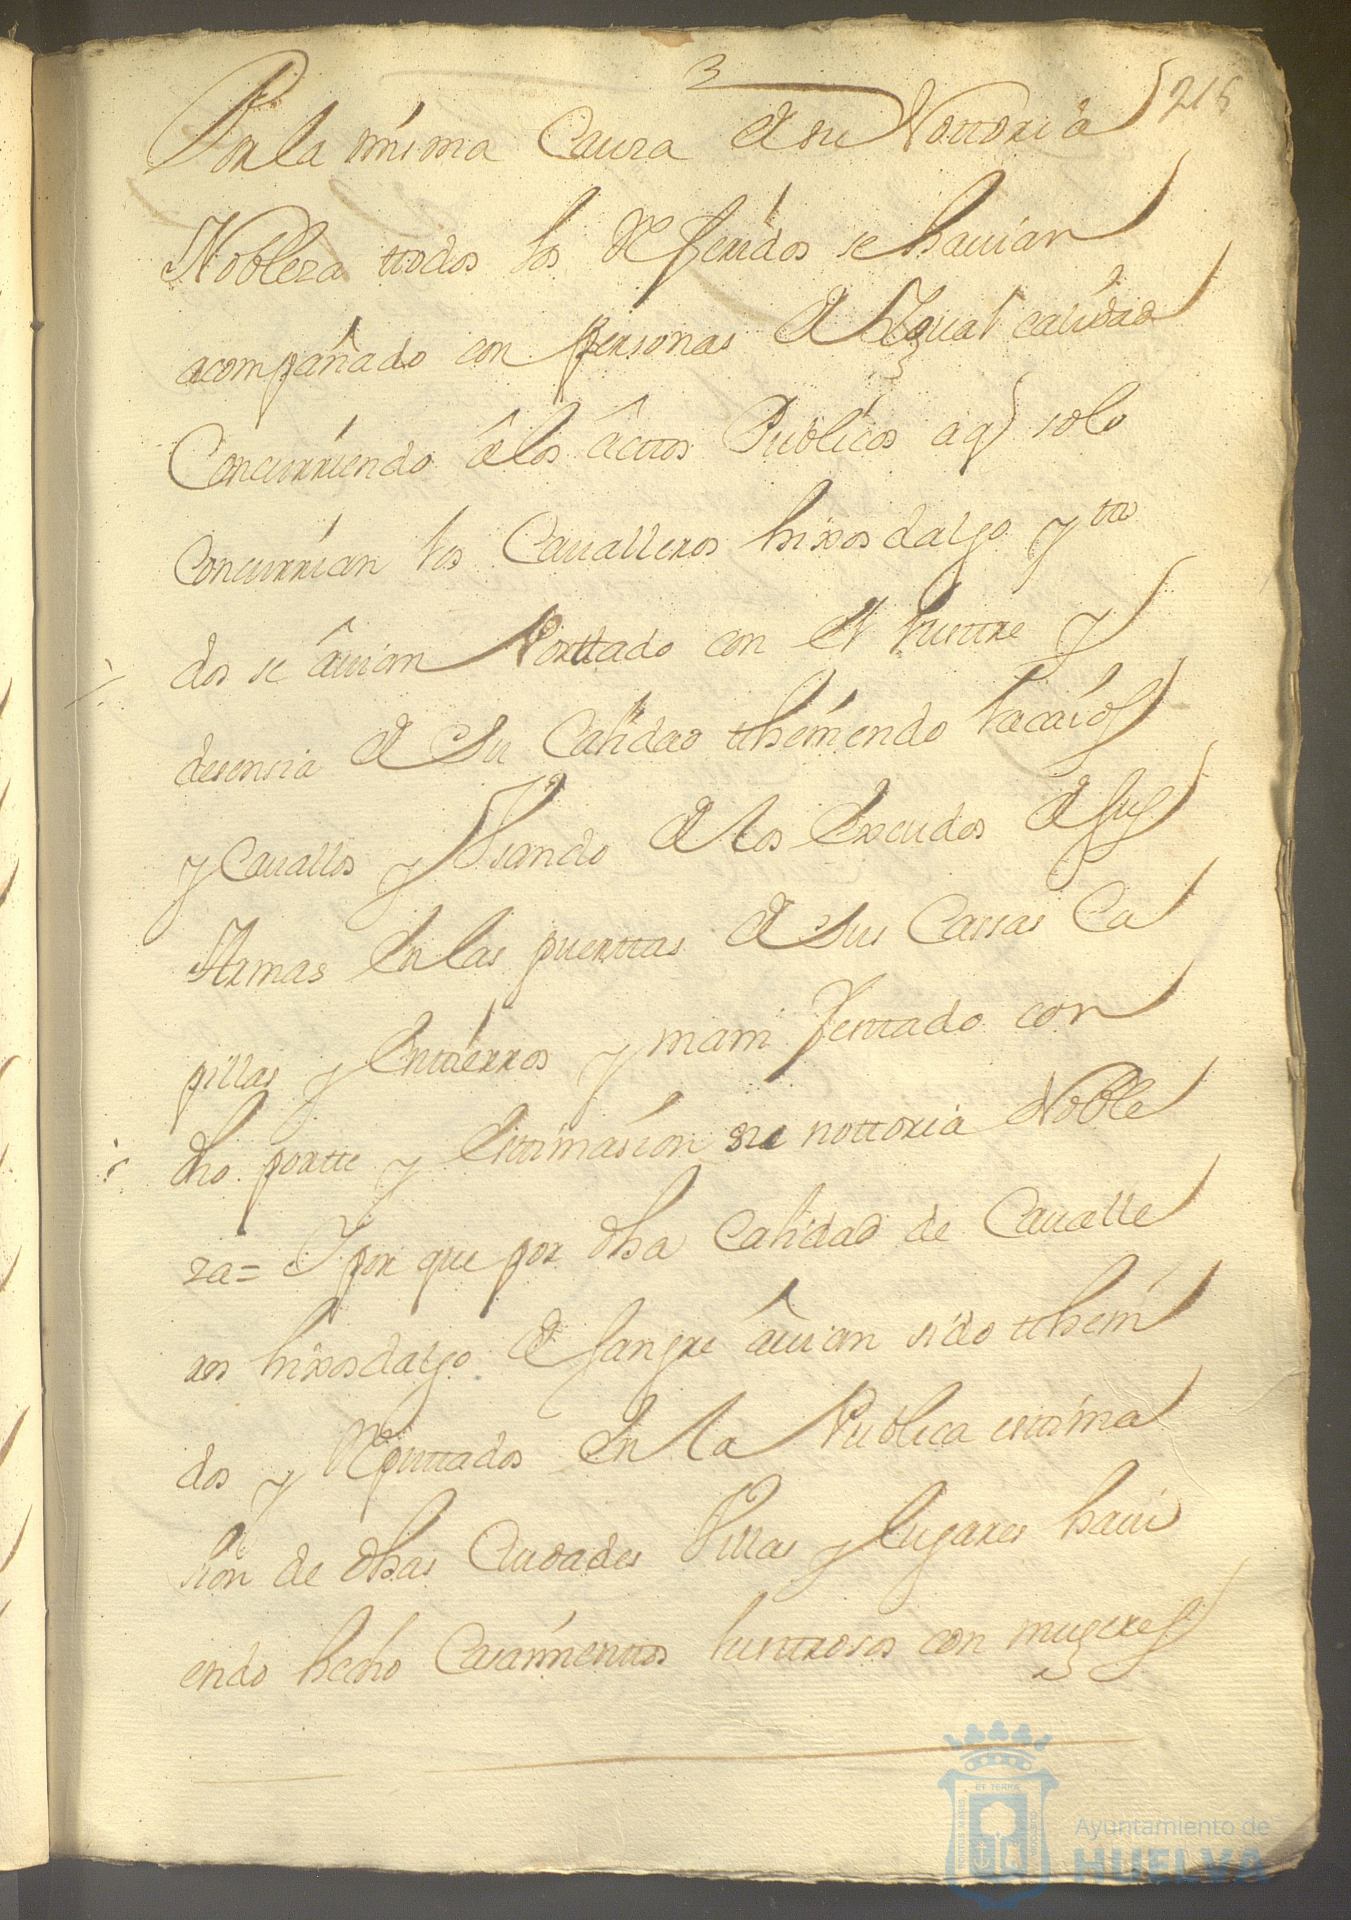 3
216
Por la misma Caussa de su Nottoria
Nobleza ttodos los Referidos se havian
acompañado con personas de Ygual calidad
Concurriendo â los âcttos Publicos a q solo
Concurrian los Cavalleros hixosdalgo y tto
dos se âvian Porttado con el lusttre y
desensia de su Calidad tthêniendo lacaios
y Cavallos y Usando de los Escudos de sus
Armas en las puerttas de sus Cassas Ca
pillas y Enttierros y manifesttado con
dho portte y Esttimasion su nottoria Noble
za = Y por que por dha Calidad de Cavalle
ros hixosdalgo de sangre âvian sido ttheni
dos y Reputtados en la Publica esttima
sion de dhas Ciudades Villas y lugares havi
endo hecho Casamienttos lusttrosos con mugeres
ET TERRA
Ayuntamiento de
HUELVA